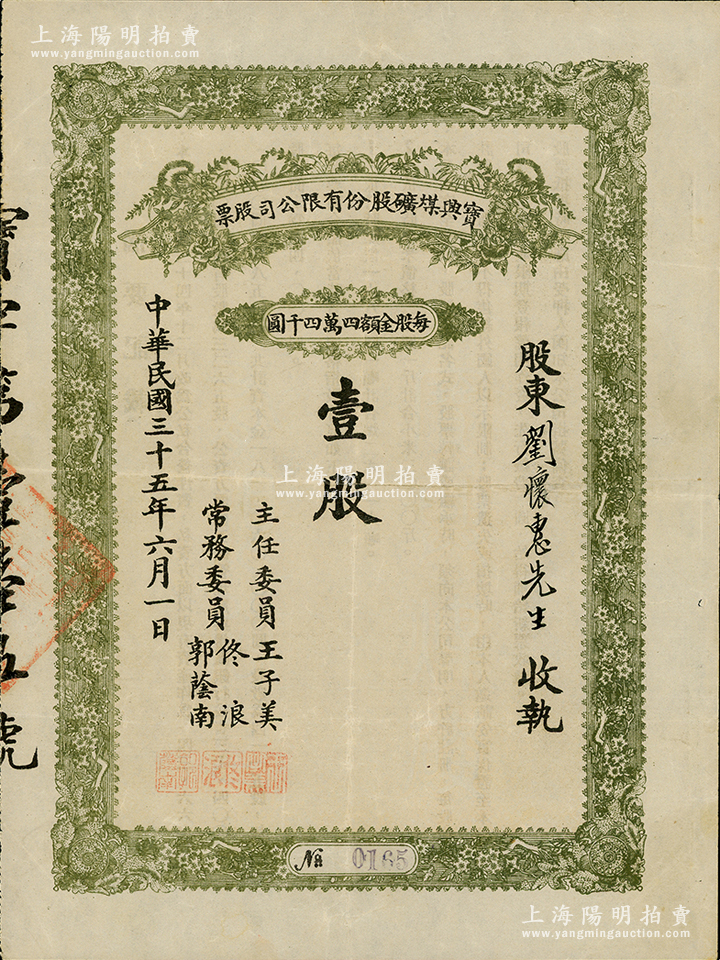 上海陽明拍賣
www.yangmingauction.com
寶興煤礦股份有限公司股票
每股金額四萬四千圓
股東劉懷惠先生 收執
壹股
主任委員 王子美
常務委員 佟浪
郭蔭南
中華民國三十五年六月一日
No 0165
上海陽明拍賣
www.yangmingauction.com
上海陽明拍賣
www.yangmingauction.com